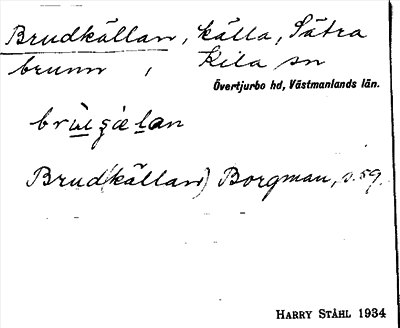 Brudkällan, källa, Sätra
brunn, Kila sn
Övertjurbo hd, Västmanlands län.
Brud(källan) Borgman, s. 59.
HARRY STÅHL 1934